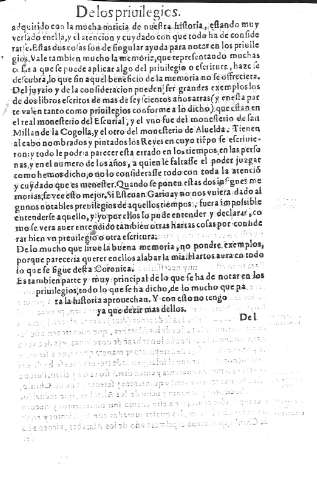 De los priuilegios.
adquirido con la mucha noticia de nuestra historia, estando muy
versado en ella, y el atencion y cuydado con que todo ha de conside
rarse. Estas dos cosas son de singular ayuda para notar en los priuile
gios. Vale tambien mucho la memoria, que representando muchas
o lo a que se puede aplicar algo del priuilegio o escritura, haze se
descubra, lo que sin aquel beneficio de la memoria no se offreciera.
Del juyzio y de la consideracion pueden ser grandes exemplos los
de dos libros escritos de mas de seyscientos años atras (y en esta par
te valen tanto como priuilegios conforme a lo dicho) que estan en
el real monesterio del Escurial, y el vno fue del monesterio de san
Millan de la Cogolla, y el otro del monesterio de Aluelda: Tienen
al cabo nombrados y pintados los Reyes en cuyo tiẽpo se escriuie-
ron: y todo le podra parecer esta errado en los tiempos, en las perso
nas, y en el numero de los años, a quien le faltasse el poder juzgar
como hemos dicho, o no lo considerasse todo con toda la atenciõ
y cuydado que es menester. Quando se ponen estas dos insignes me
morias, se vee esto mejor. Si Esteuan Garibay no nos vuiera dado al
gunos notables priuilegios de aquellos tiempos, fuera impossible
entenderse aquello, y yo por ellos lo pude entender y declarar, co
mo se vera auer entendido tambiẽ otras hartas cosas por conside
rar bien vn preuilegio o otra escritura.
De lo mucho que sirue la buena memoria, no pondre exemplos,
porque pareceria querer en ellos alabar la mia. Hartos aura en todo
lo que se sigue desta Coronica.
Es tambien parte y muy principal de lo que se ha de notar en los
priuilegios, todo lo que se ha dicho, de lo mucho que pa
ra la historia aprouechan. Y con esto no tengo
ya que dezir mas dellos.
Del